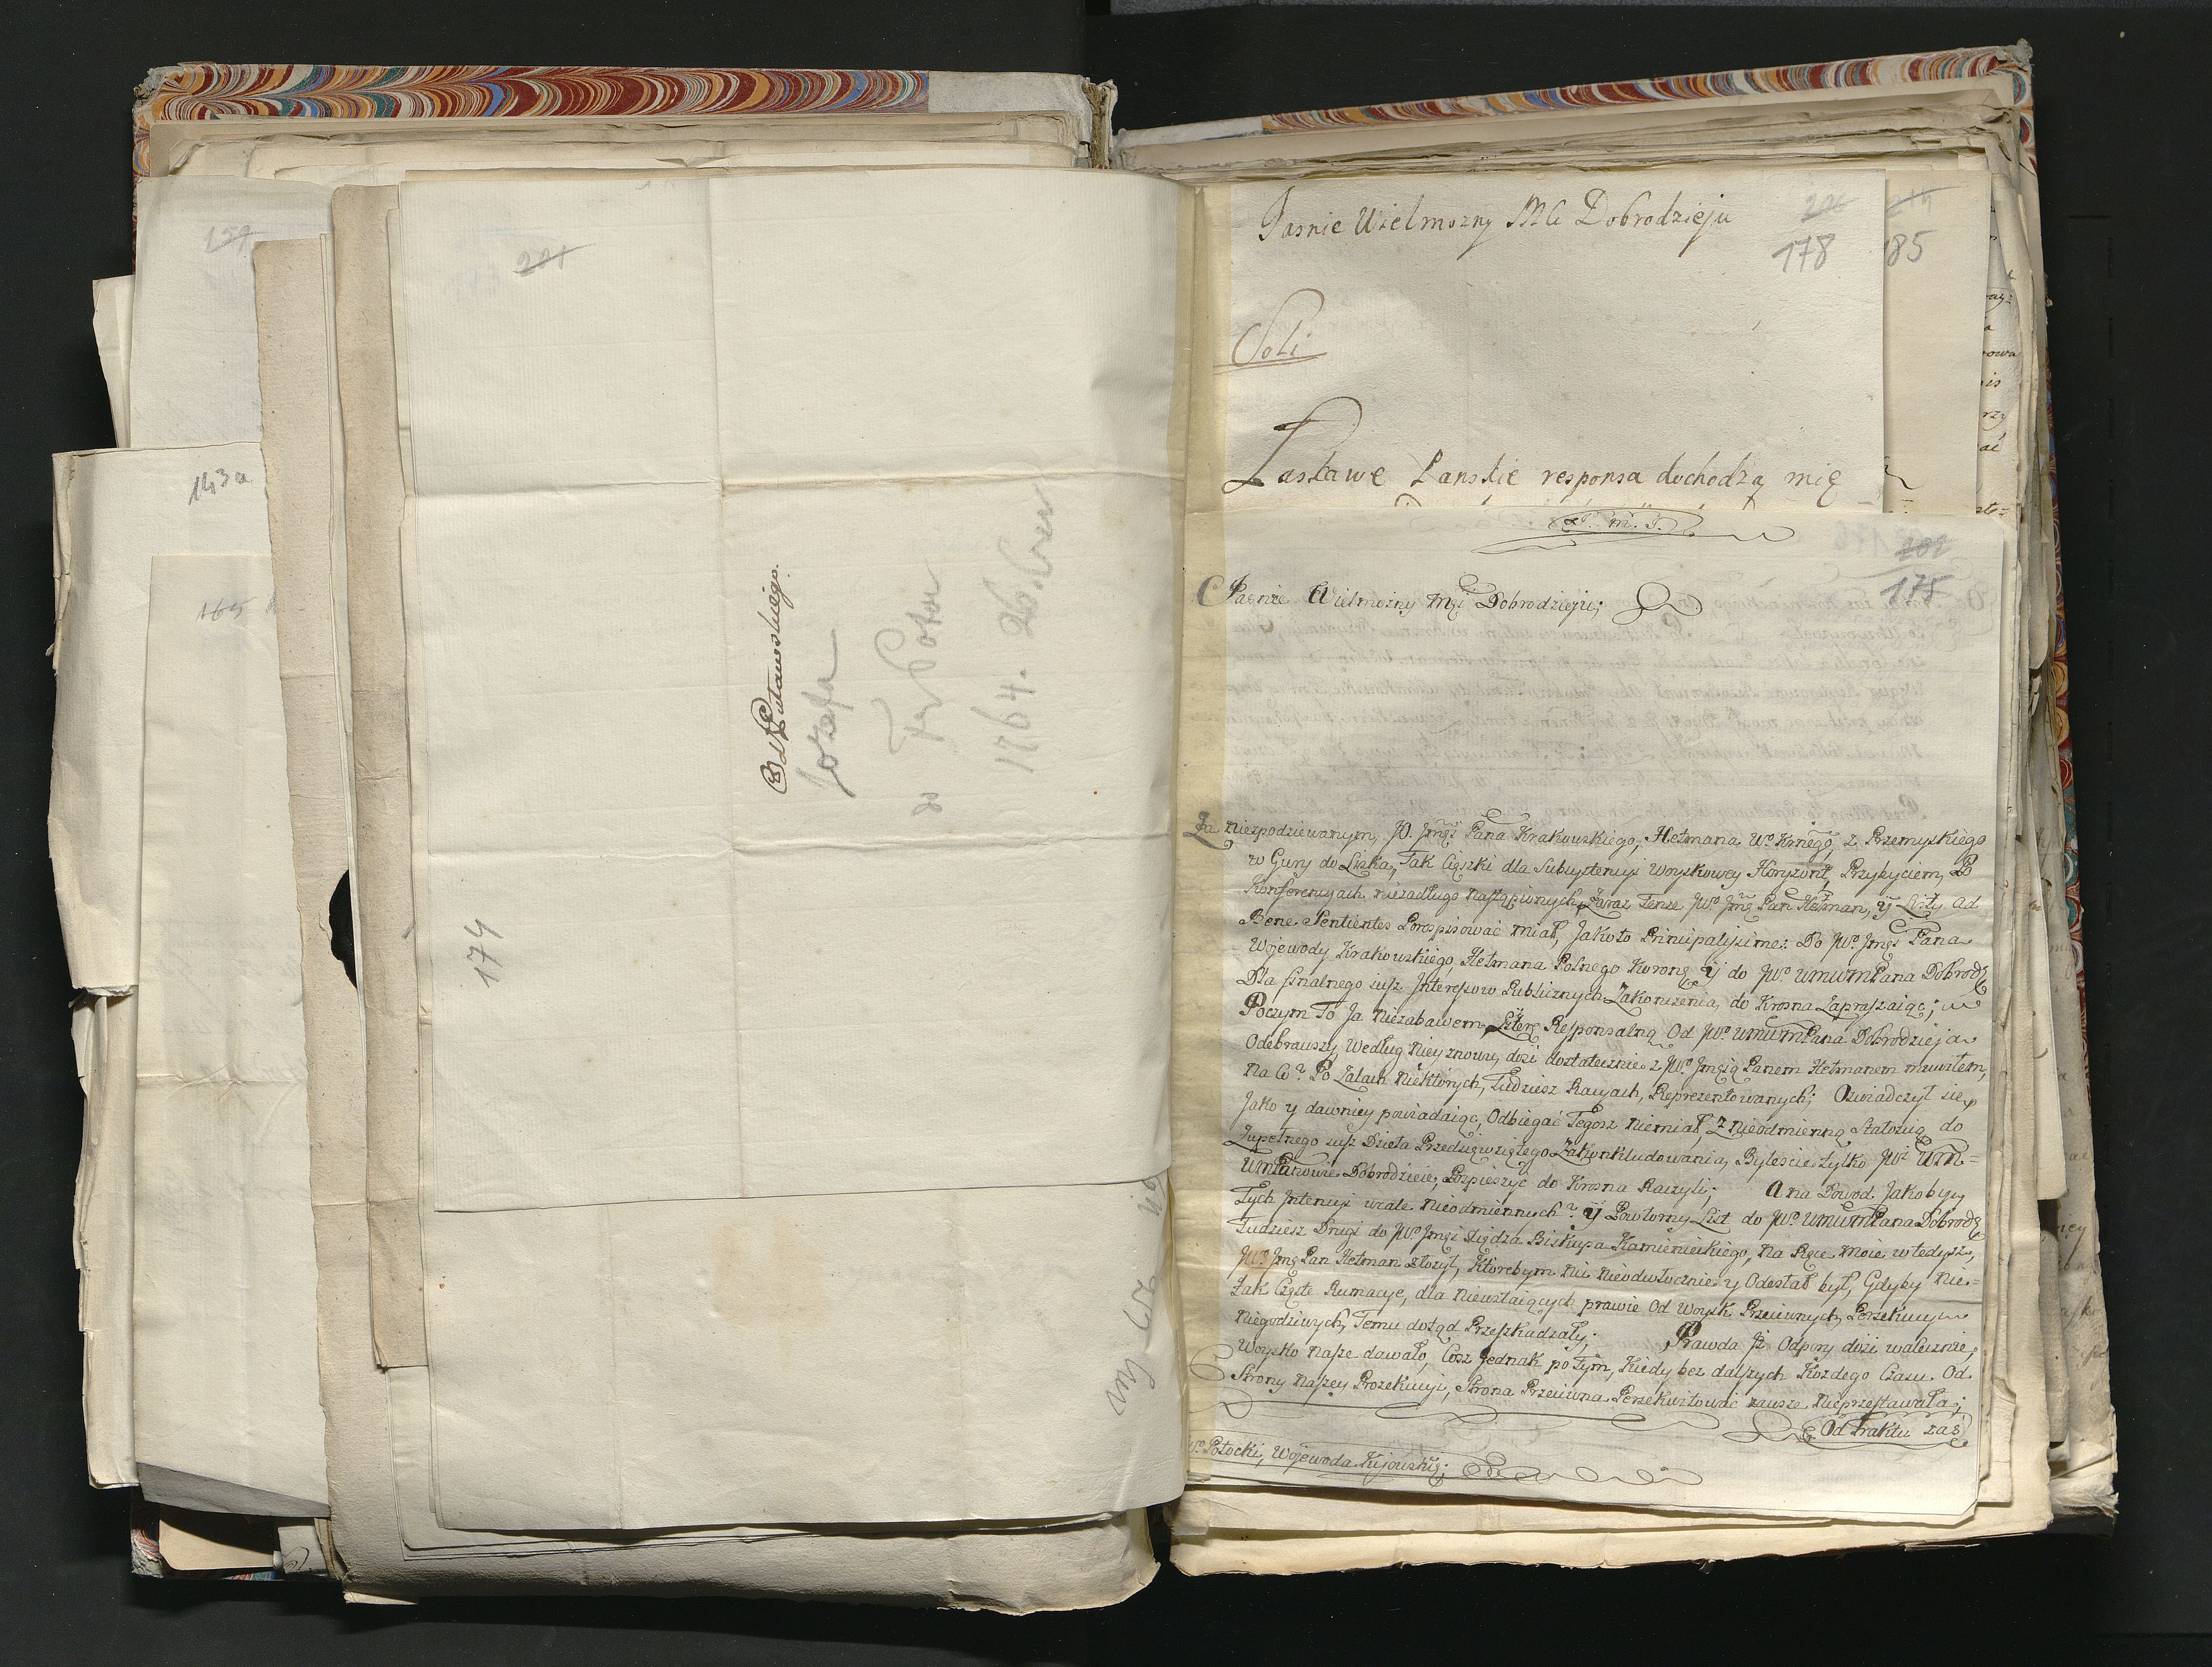 159
143a
165
201
Od Pułtawskiego.
Józefa
do Fr Poto
1764. 26. Czerw
174
Jasnie Wielmozny Mci Dobrodzieju
206
178
211
185
Soli
Łaskawe Panskie responsa dochodzą mię
J. m. J.
202
175
Jasnie Wielmozny Mći Dobrodzieju;
Za Niespodziewanym, JO. Jmći Pana Krakowskiego, Hetmana Wo Krnego, z Przemyskiego
w Gury do Liska, Tak Cięszki dla Subsystencyi Woyskowey Horyzont, Przybyciem, Po
Konferencyach niezadługo Nastąpiwnych, Zaraz Tenze JWo Jmć Pan Hetman, ÿ Listy Ad
Bene Sentientes Porospisować miał, Jakoto Principalissime: Do JWo Jmći Pana
Wojewody Krakowskiego, Hetmana Polnego Korong ÿ do JWo WMWMPana Dobrodź
Dla finalnego iusz Interessow Publicznych Zakonczenia, do Krosna Zapraszaiąc;
Poczym To Ja Niezabawem, Literę Responsalną Od JWo WMWMPana Dobrodzieja
Odebrawszy, Według Niey znowu, dosi dostatecznie z JWo Jmcią Panem Hetmanem muwiłem,
Na Co? Po Zalach Niektórych, Tudziesz Racyach, Reprezentowanych; Oswiadczył się,
Jako y dawniey powiadaiąc, Odbiegać Tegosz Niemiał, Z Nieodmienną Statozcią do
Zupełnego iusz Dzieła Przedsięwziętego Zakonkludowania, Byleście tylko JWi WM=
WMPanowie Dobrodzieie, Pospieszyć do Krosna Raczyli; A na Dowod Jakobyy
Tych Intencyi wcale Nieodmiennych? ÿ Powtorny List do JWo WMWMPana Dobrodź
Tudziesz Drugi do JWo Jmći Xiędza Biskupa Kamienieckiego, Na Ręce Moie wtedysz,
JWo Jmć Pan Hetman złożył, Którebym Nić Nieodwłocznie y Odesłał był, Gdyby Nie=
Tak Częste Rumacye, dla Nieustaiących prawie Od Woysk Przeciwnych, Persekucyi
Niegodziwych, Temu dotąd Przeszkadzały; Prawda Jż Odpory dosi walecznie,
Woysko Nasze dawało, Cosz jednak potym, Kiedy bez dalszych Kozdego Czasu Od
Strony Naszey Prozekucyi, Strona Przeciwna Perzekwitować zawsze Nieprzestawała;
Od Traktu zaś
Wo Potocki, Wojewoda Kijowski;